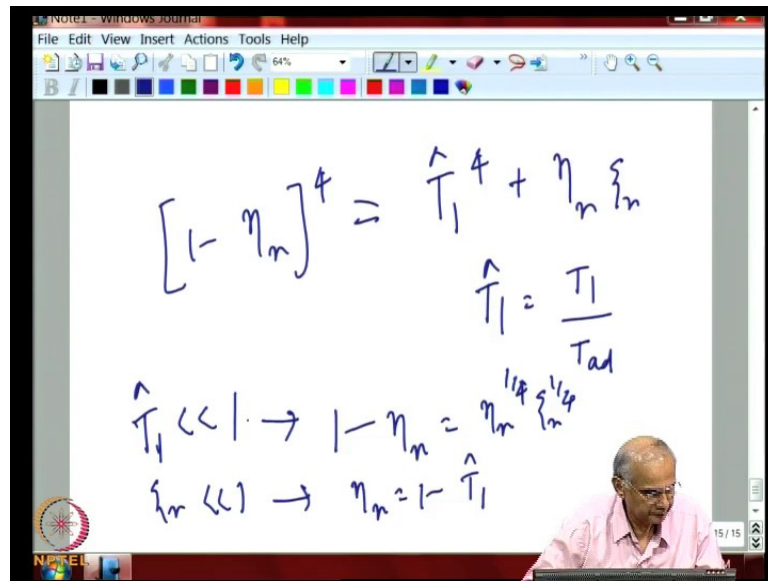 Note1 - Windows Journal
File Edit View Insert Actions Tools Help
64%
B I
[1 - η_r]^4 = T̂_1^4 + η_r ξ_r
T̂_1 = T_1 / T_ad
T̂_1 << 1 → 1 - η_r = η_r^{1/4} ξ_r^{1/4}
ξ_r << 1 → η_r = 1 - T̂_1
15 / 15
NPTEL